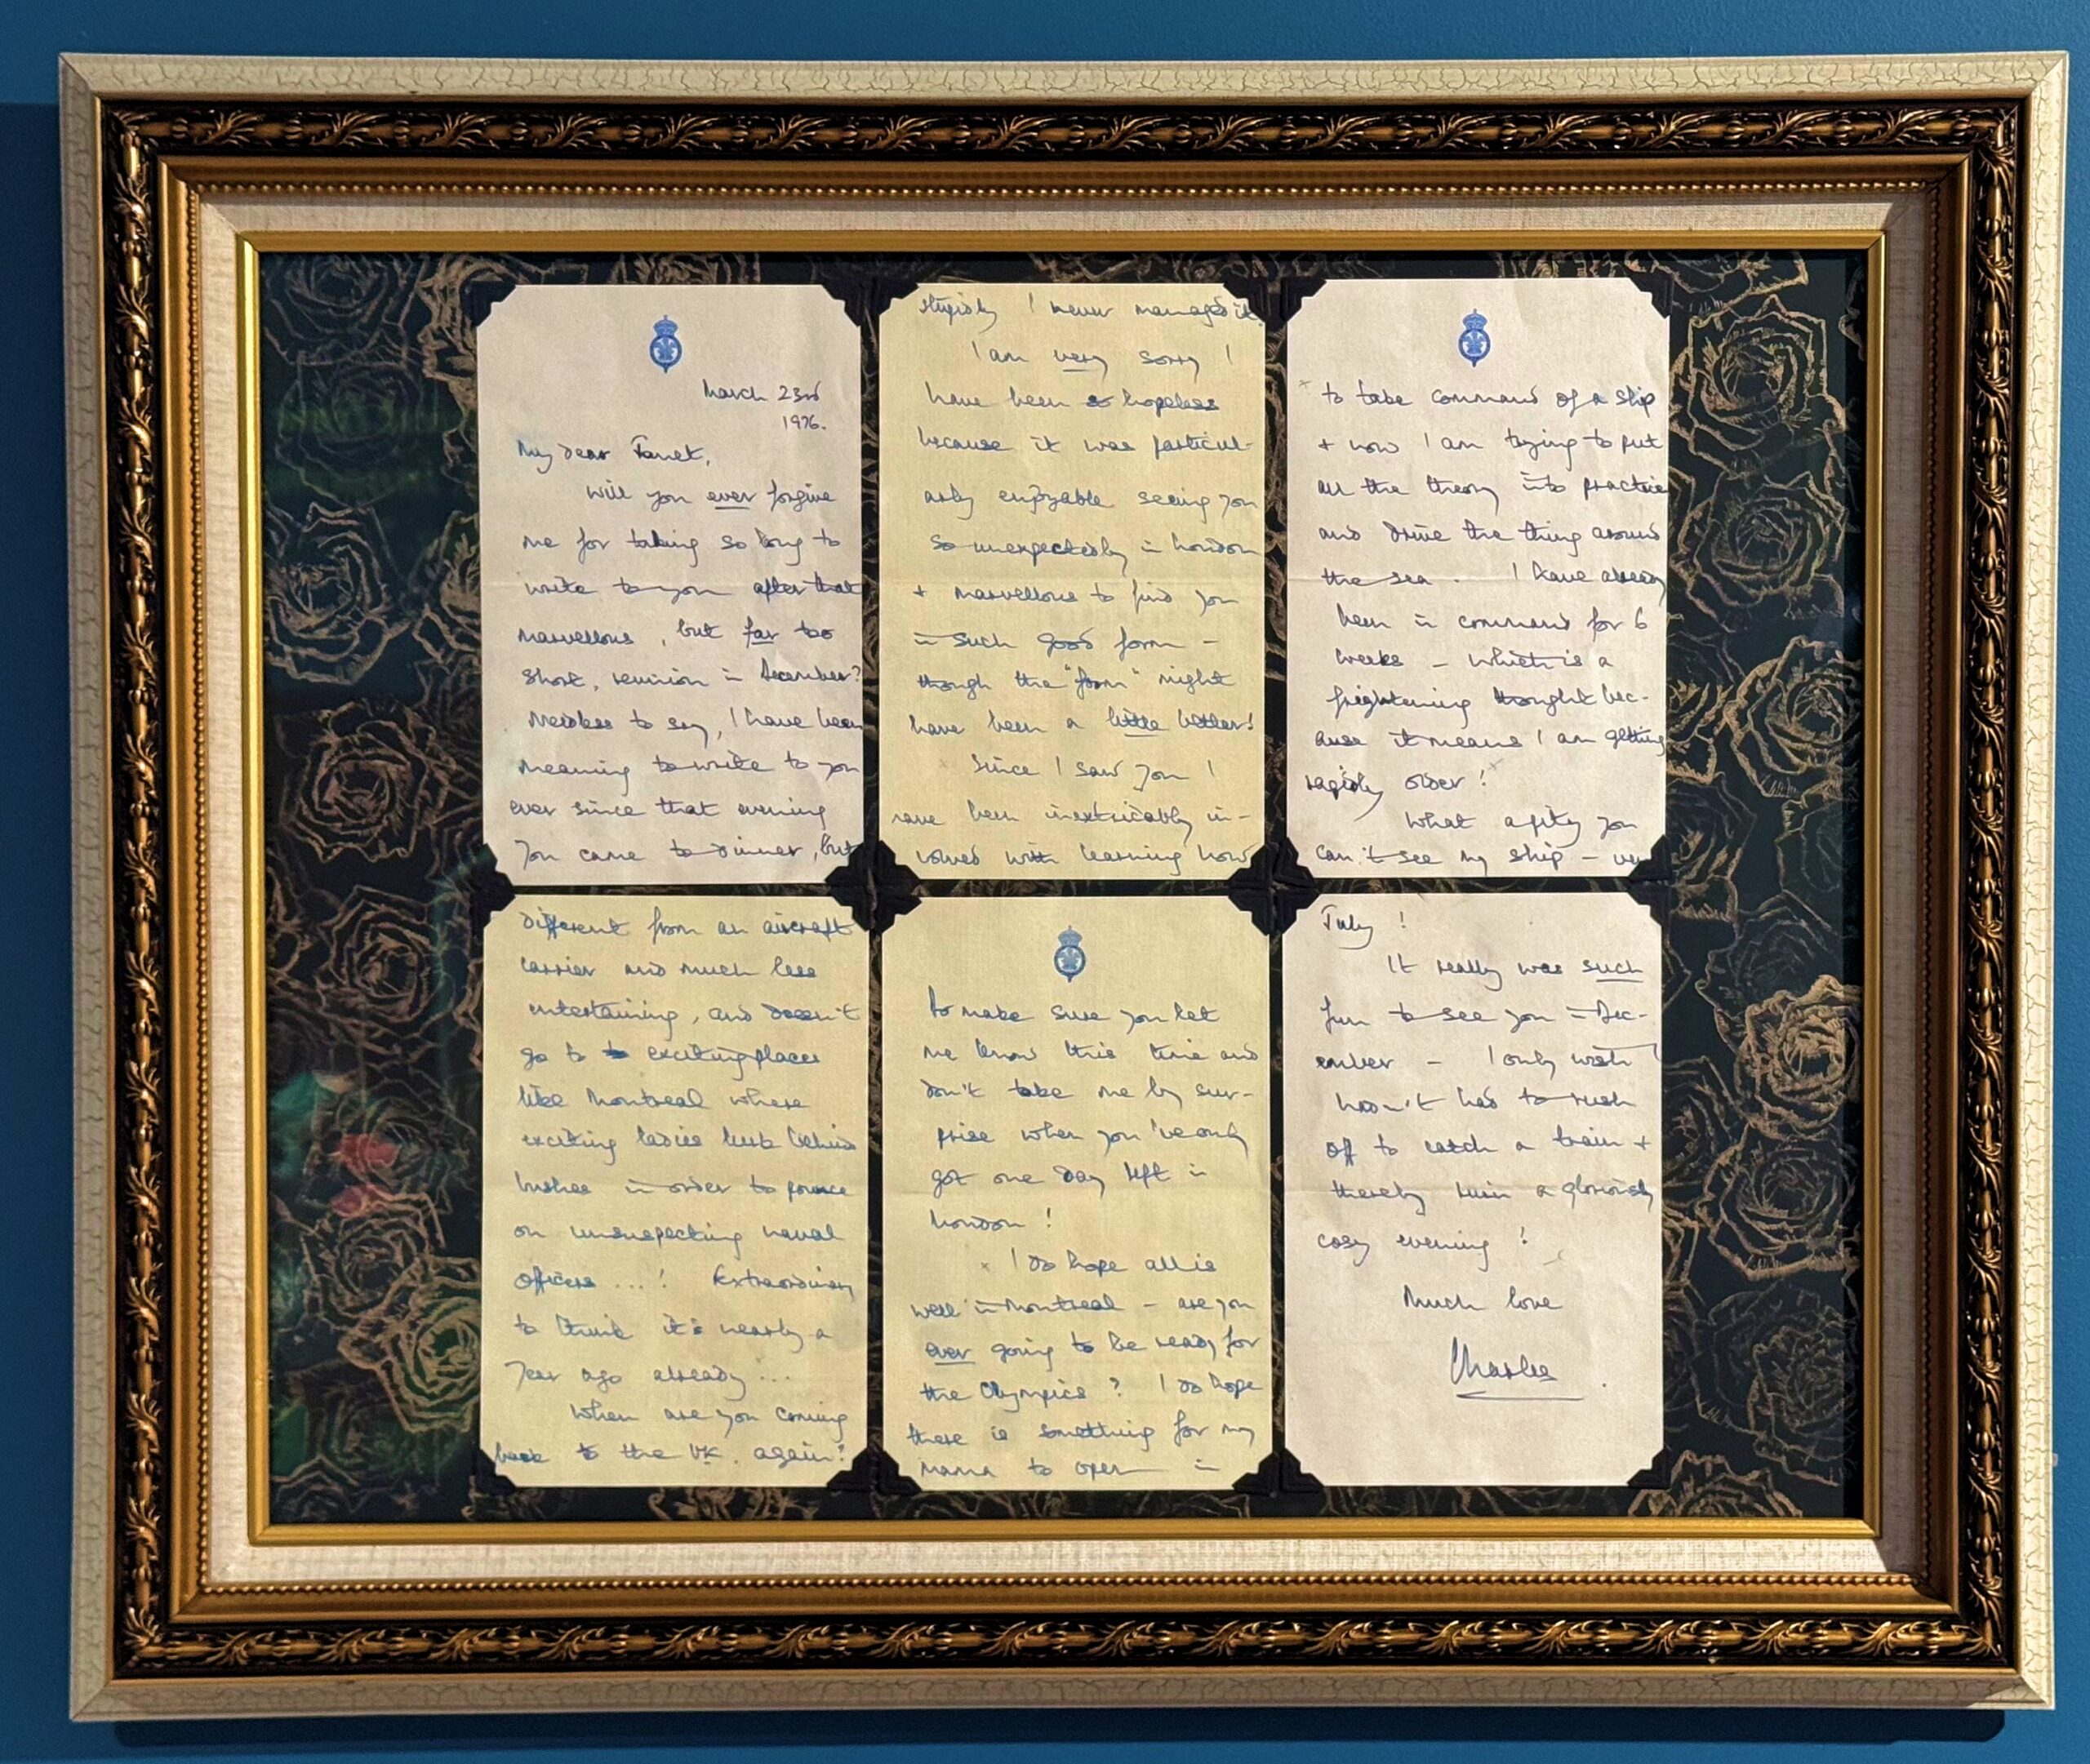 March 23rd
1976.
My dear Janet,
Will you ever forgive
me for taking so long to
write to you after that
marvellous, but far too
short, reunion in December?
Needless to say, I have been
meaning to write to you
ever since that evening
you came to dinner, but
stupidly I never managed it.
I am very sorry I
have been so hopeless
because it was particul-
arly enjoyable seeing you
so unexpectedly in London
+ marvellous to find you
in such good form -
though the "form" might
have been a little better!
Since I saw you I
have been inextricably in-
volved with learning how
to take command of a ship
+ now I am trying to put
all the theory into practice
and drive the thing around
the sea. I have already
been in command for 6
weeks - which is a
frightening thought bec-
ause it means I am getting
rapidly older!
What a pity you
can't see my ship - very
different from an aircraft
carrier and much less
entertaining, and doesn't
go to exciting places
like Montreal where
exciting ladies lurk behind
bushes in order to pounce
on unsuspecting naval
officers ...! Extraordinary
to think it's nearly a
year ago already ...
When are you coming
back to the UK. again?
to make sure you let
me know this time and
don't take me by sur-
prise when you've only
got one day left in
London!
I do hope all is
well in Montreal - are you
ever going to be ready for
the Olympics? I do hope
there is something for my
mama to open in
July!
It really was such
fun to see you in Dec-
ember - I only wish I
hadn't had to rush
off to catch a train +
thereby ruin a gloriously
cosy evening!
Much love
Charles